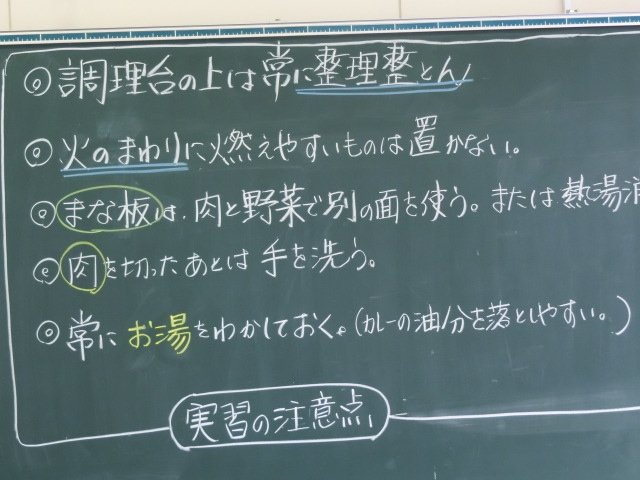 ◎調理台の上は常に整理整とん
◎火のまわりに燃えやすいものは置かない。
◎まな板は、肉と野菜で別の面を使う。または熱湯消
◎肉を切ったあとは手を洗う。
◎常にお湯をわかしておく。(カレーの油分を落としやすい。)
実習の注意点